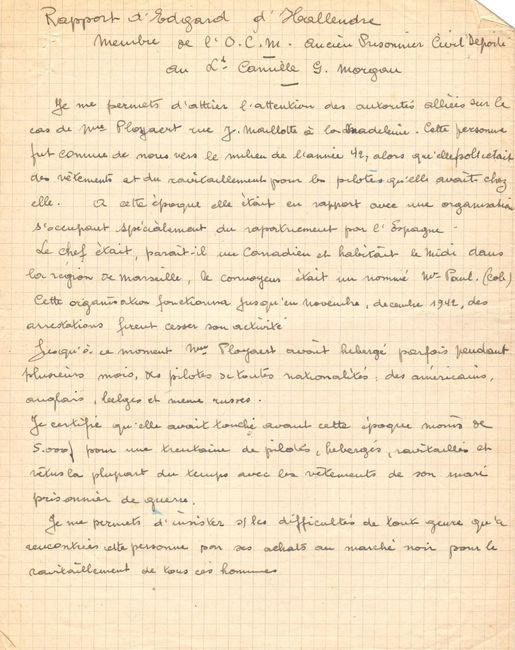 Rapport d'Edgard d'Hallendre
Membre de l'O.C.M. Ancien Prisonnier Civil Déporté
au Lt Camille G. Morgan
Je me permets d'attirer l'attention des autorités alliées sur le
cas de Mme Ployaert rue J. Maillotte à la Madeleine. Cette personne
fut connue de nous vers le milieu de l'année 42, alors qu'elle sollicitait
des vêtements et du ravitaillement pour les pilotes qu'elle avait chez
elle. A cette époque elle était en rapport avec une organisation
s'occupant spécialement du rapatriement par l'Espagne.
Le chef était, parait-il un Canadien et habitait le Midi dans
la région de Marseille, le convoyeur était un nommé Mr Paul. (Cole)
Cette organisation fonctionna jusqu'en novembre, decembre 1942, des
arrestations firent cesser son activité
Jusqu'à ce moment Mme Ployaert avait hebergé parfois pendant
plusieurs mois, des pilotes de toutes nationalités; des américains,
anglais, belges et meme russes.
Je certifie qu'elle avait touché avant cette époque moins de
5.000f pour une trentaine de pilotes, hebergés, ravitaillés et
vêtus la plupart du temps avec les vêtements de son mari
prisonnier de guerre.
Je me permets d'insister s/ les difficultés de toute genre qu'a
rencontrées cette personne par ses achats au marché noir pour le
ravitaillement de tous ces hommes